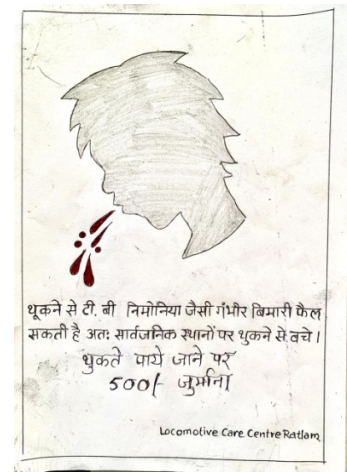 थूकने से टी. बी निमोनिया जैसी गंभीर बिमारी फैल
सकती है अतः सार्वजनिक स्थानों पर थुकने से बचे।
थुकते पाये जाने पर
500/- जुर्माना
Locomotive Care Centre Ratlam